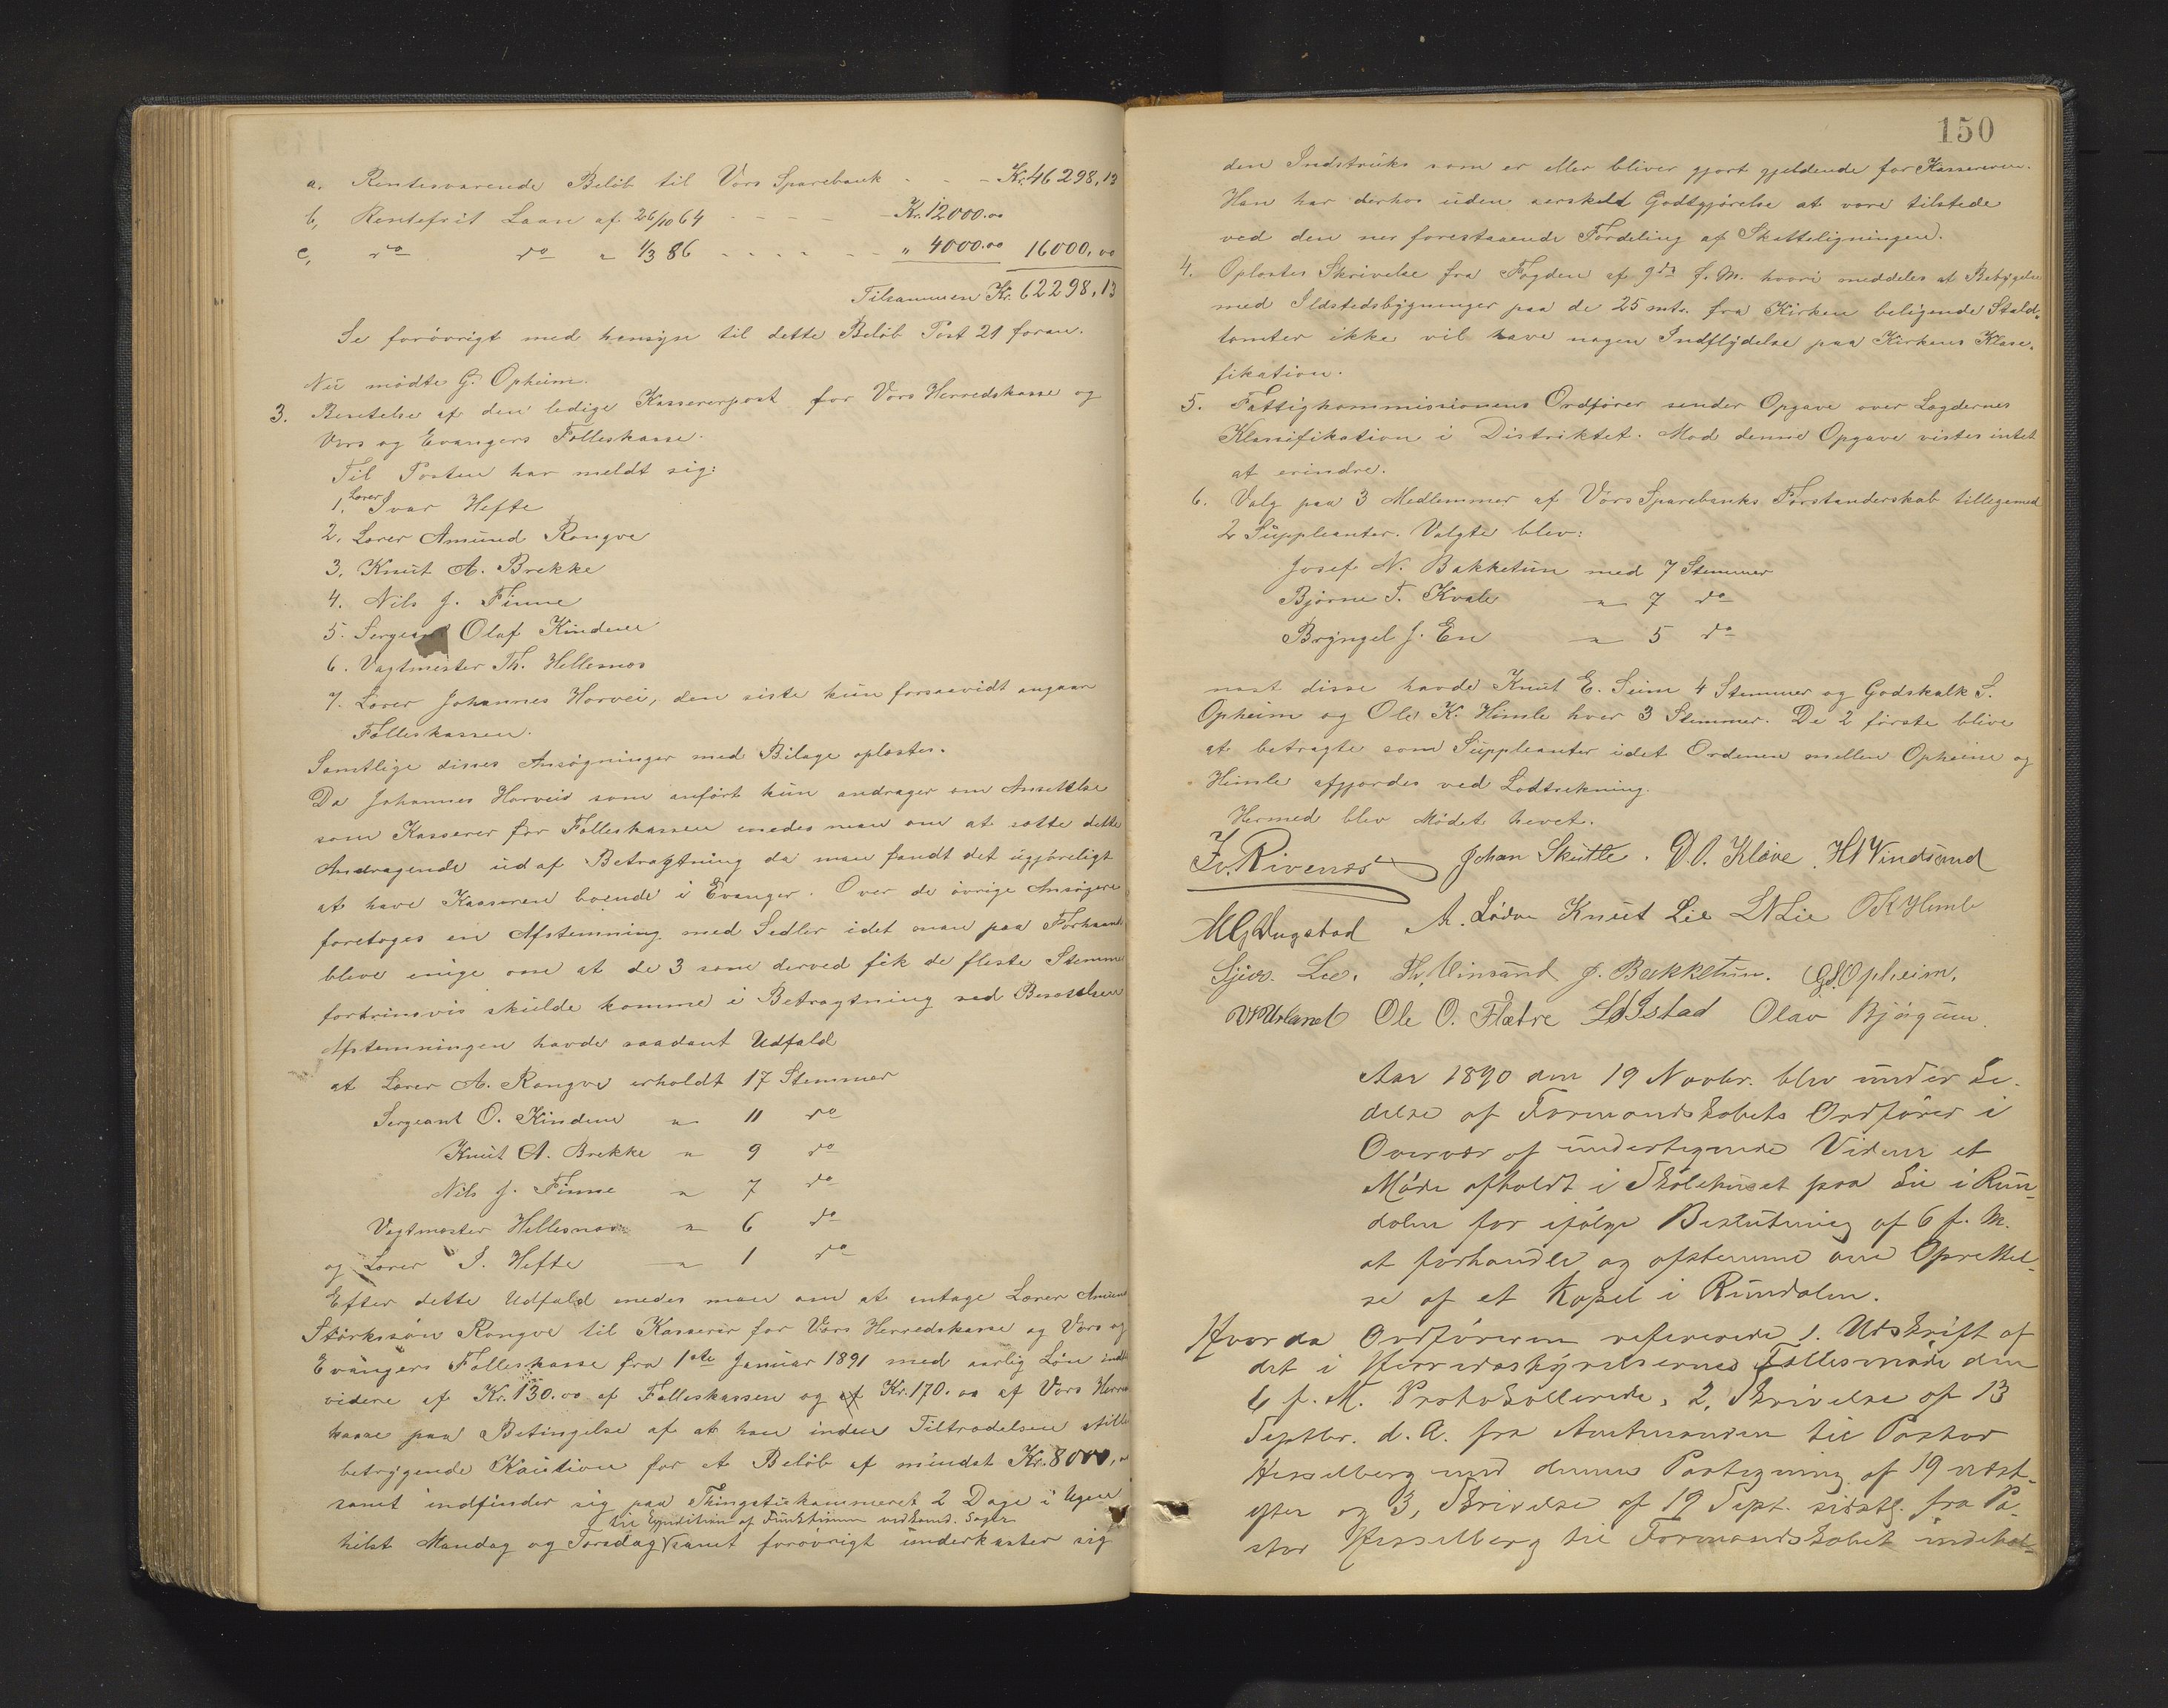 a. Rentesvarende Beløb til Vors Sparebank - - - Kr. 46298,13
b, Rentefrit Laan af 26/10 64 - - - - Kr. 12000.00
c, do do " 1/3 86 - - - - - " 4000.00 16000,00
Tilsammen Kr. 62298,13
Se forøvrigt med hensyn til dette Beløb Post 21 foran.
Nu mødte G. Opheim.
3. Besettelse af den ledige Kassererpost for Vors Herredskasse og
Vors og Evangers Felleskasse.
Til Posten har meldt sig:
1. Lærer Ivar Hefte
2. Lærer Amund Rongve
3. Knut A. Brekke
4. Nils J. Finne
5. Sergeant Olaf Kindem
6. Vagtmester Th. Hellesnes
7. Lærer Johannes Horvei, den siste kun forsaavidt angaar
Felleskassen.
Samtlige disses Ansøgninger med Bilage oplæstes.
Da Johannes Horveid som anført kun andrager om Ansettelse
som Kasserer for Felleskassen enedes man om at sætte dette
Andragende ud af Betragtning da man fandt det ugjørligt
at have Kasseren boende i Evanger. Over de øvrige Ansøgere
foretoges en Afstemning med Sedler idet man paa Forhaand
bleve enige om at de 3 som derved fik de fleste Stemmer
fortrinsvis skulde komme i Betragtning ved Besættelsen
Afstemningen havde saadant Udfald
at Lærer A. Rongve erholdt 17 Stemmer
Sergeant O. Kindem " 11 do
Knut A. Brekke " 9 do
Nils J. Finne " 7 do
Vagtmester Hellesnes " 6 do
og Lærer I. Hefte " 1 do
Efter dette Udfald enedes man om at antage Lærer Amund
Størksøn Rongve til Kasserer for Vors Herredskasse og Vors og
Evangers Felleskasse fra 1ste Januar 1891 med aarlig Løn indtil
videre af Kr. 130.00 af Felleskassen og af Kr. 170.00 af Vors Herreds
kasse paa Betingelse af at han inden Tiltrædelsen stiller
betryggende Kaution for et Beløb af mindst Kr. 8000,00
samt indfinder sig paa Thingstuekammeret 2 Dage i Ugen
til Expedition af Funktionen vedkomd. Sager
helst Mandag og Torsdag samt forøvrigt underkaster sig
150
den Indstruks som er eller bliver gjort gjeldende for Kassereren.
Han har derhos uden serskildt Godtgjørelse at være tilstede
ved den her forestaaende Fordeling af Skatteligningen.
4. Oplæstes Skrivelse fra Fogden af 9de f. M. hvori meddeles at Bebyggelse
med Ildstedsbygninger paa de 25 mtr. fra Kirken beliggende Stald-
tomter ikke vil have nogen Indflydelse paa Kirkens Klase-
fikation.
5. Fattigkommissionens Ordfører sender Opgave over Lægdernes
Klassifikation i Distriktet. Mod denne Opgave vistes intet
at erindre.
6. Valg paa 3 Medlemmer af Vors Sparebanks Forstanderskab tilligemed
2 Suppleanter. Valgte blev:
Josef N. Bakketun med 7 Stemmer
Bjørne T. Kvale " 7 do
Bryngel J. En " 5 do
nest disse havde Knut E. Seim 4 Stemmer og Godskalk S.
Opheim og Ole K. Himle hver 3 Stemmer. De 2 første blive
at betragte som Suppleanter idet Ordenen mellem Opheim og
Himle afgjordes ved Lodtrekning.
Hermed blev Mødet hevet.
Iv. Rivenes Johan Skutle. D. O. Kløve. H N Vindsand
M G Dugstad A. Lødve Knut Lie L N Lie O K Himle
Sjur Lie. Th. Vinsand J. Bakketun. G. S. Opheim.
Ole O. Flatre Istad Olav Bjørgum.
Aar 1890 den 19 Novbr. blev under Le-
delse af Formandskabets Ordfører i
Overvær af undertegnede Vidner et
Møde afholdt i Skolehuset paa Lie i Run-
dalen for ifølge Beslutning af 6 f. M.
at forhandle og afstemme om Oprettel-
se af et Kapel i Rundalen.
Hvorda Ordføreren refererede 1. Udskrift af
det i Herredsstyrelsernes Fellesmøde den
6 f. M. Protokollerede, 2, Skrivelse af 13
Septbr. d. A. fra Amtmanden til Pastor
Hesselberg med dennes Paategning af 19 næst-
efter og 3, Skrivelse af 19 Sept. sidstl. fra Pa-
stor Hesselberg til Formandskabet indehol-